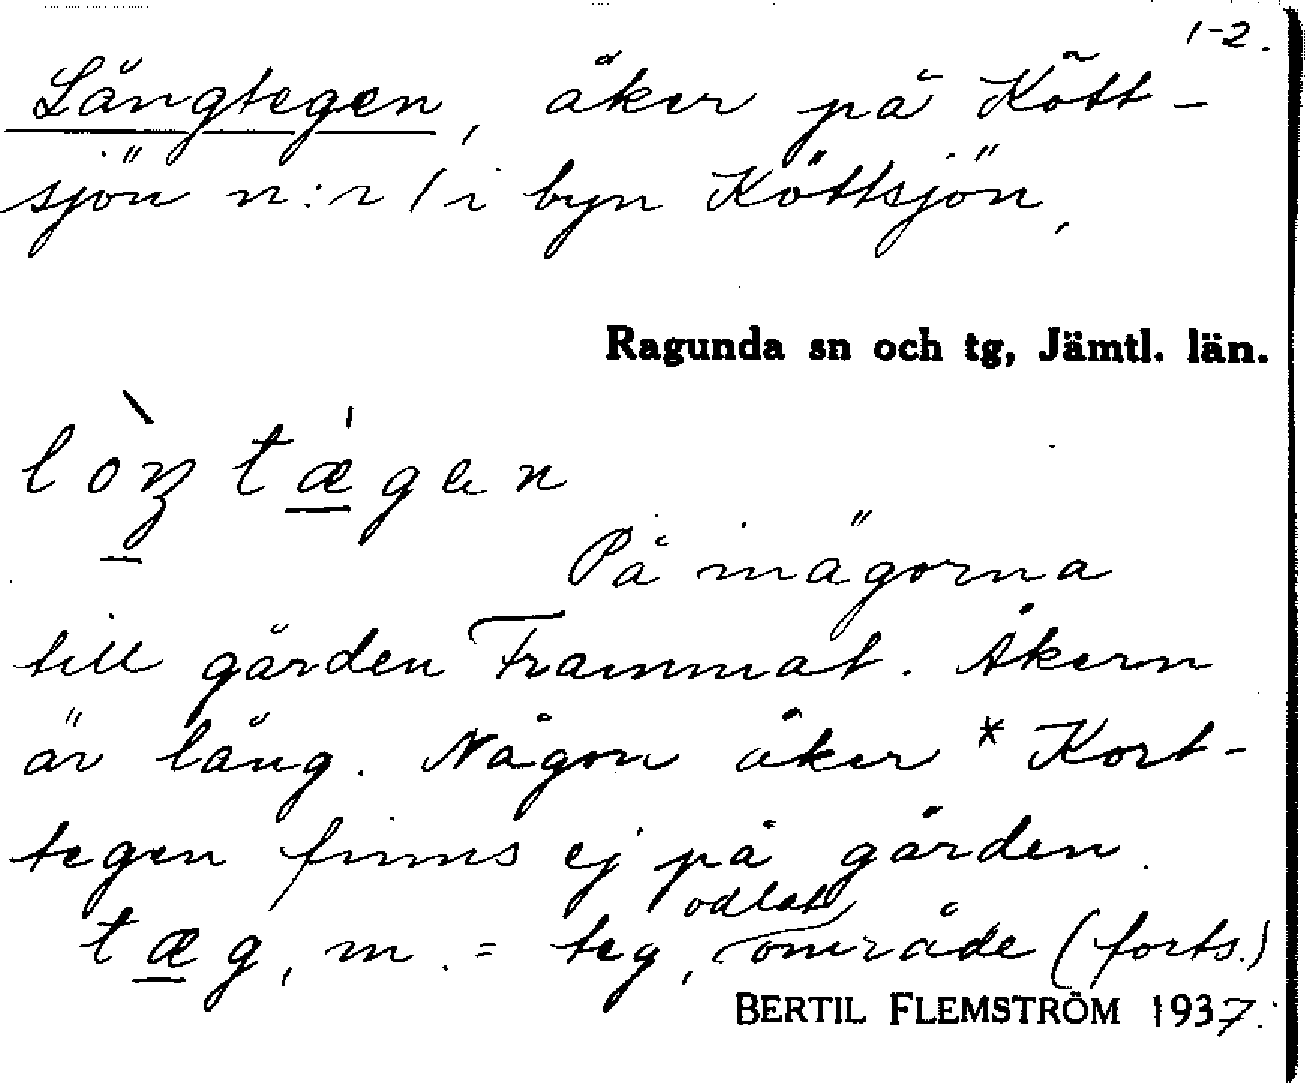 1-2.
Långtegen, åker på Kött-
sjön n:r 1 i byn Köttsjön,
Ragunda sn och tg, Jämtl. län.
lòŋtæ̲gen
På inägorna
till gården Frammat. Åkern
är lång. Någon åker *Kort-
tegen finns ej på gården.
tæ̲g, m. = teg, odlat område (forts.)
BERTIL FLEMSTRÖM 1937.